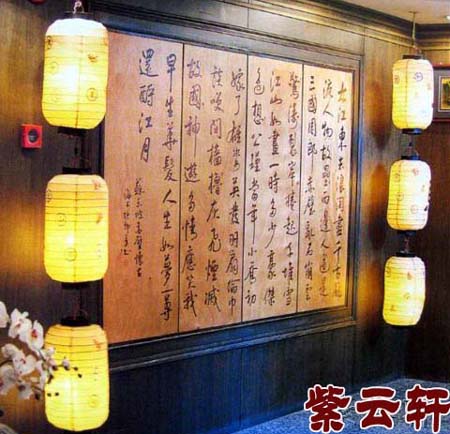 大江東去浪淘盡千古風
流人物故壘西邊人道是
三國周郎赤壁亂石崩雲
驚濤裂岸捲起千堆雪
江山如畫一時多少豪傑
遙想公瑾當年小喬初
嫁了雄姿英發羽扇綸巾
談笑間檣櫓灰飛煙滅
故國神遊多情應笑我
早生華髮人生如夢一尊
還酹江月
蘇東坡赤壁懷古
紫云轩